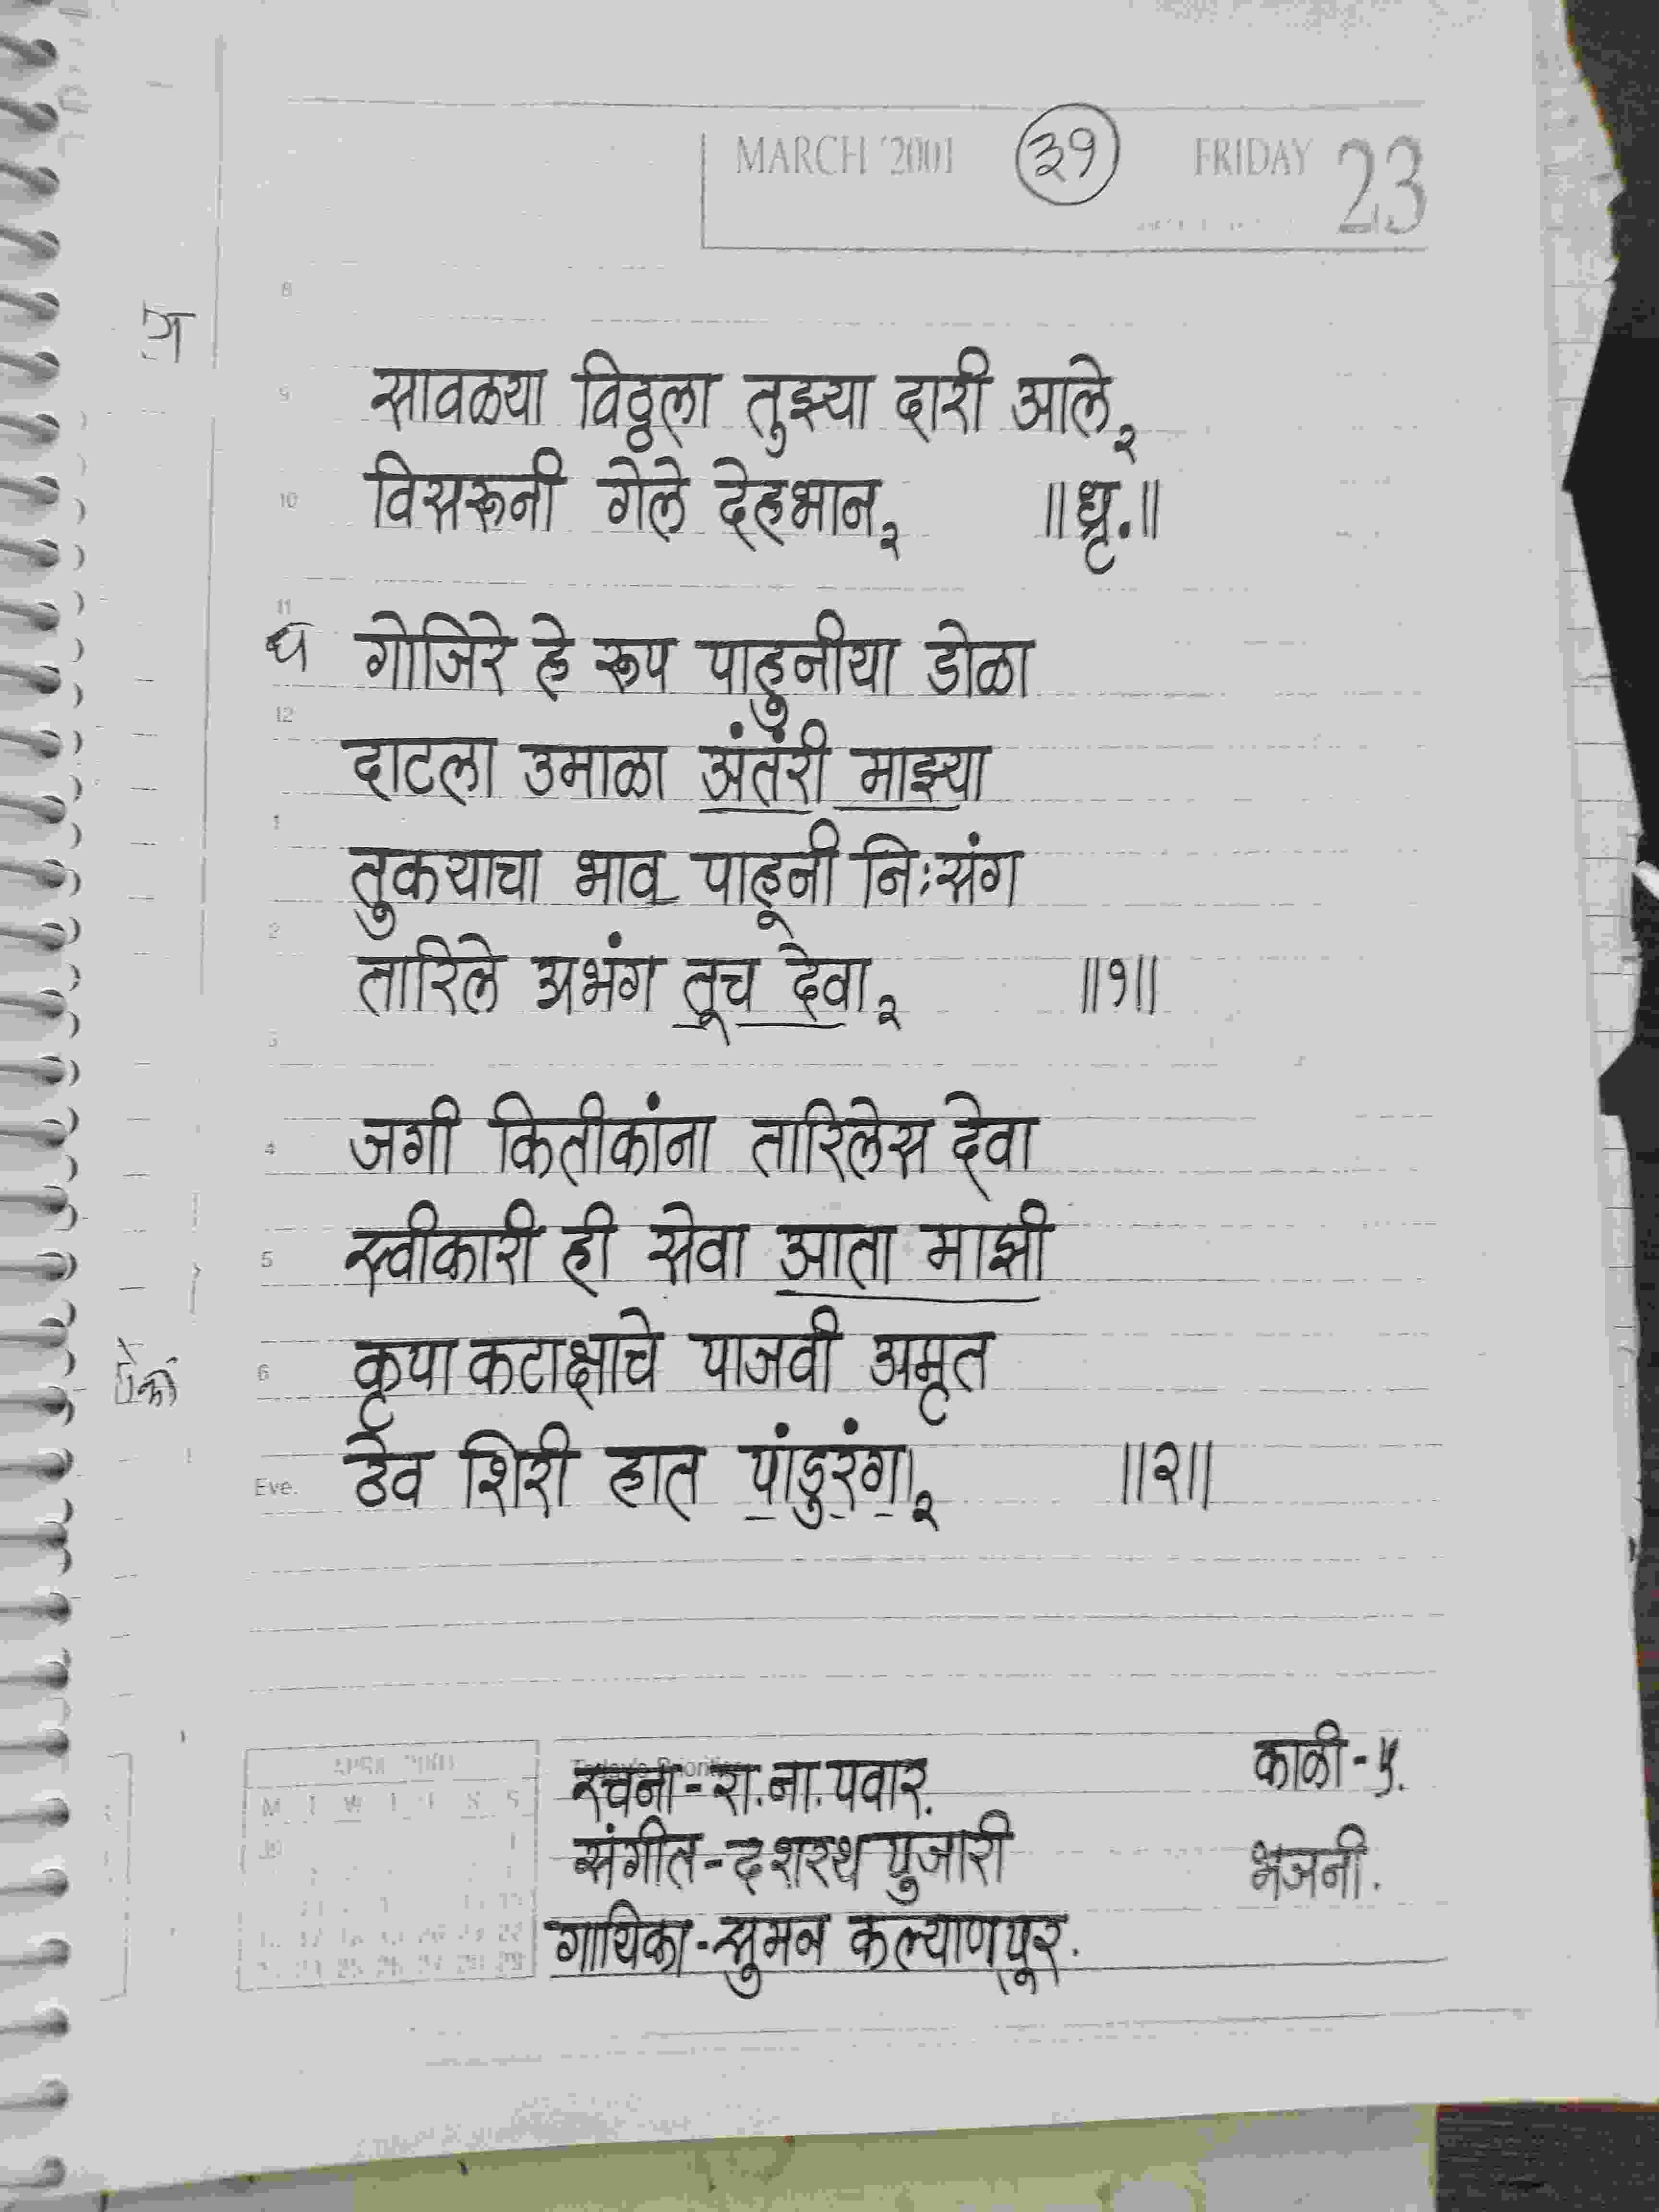 MARCH '2001 ३१ FRIDAY 23
8
9 सावळया विठ्ठला तुझ्या दारी आले२
10 विसरूनी गेले देहभान२ ॥धृ.॥
11
ध गोजिरे हे रूप पाहुनीया डोळा
12
दाटला उमाळा अंतरी माझ्या
1
तुकयाचा भाव पाहूनी निःसंग
2
तारिले अभंग तूच देवा२ ॥१॥
3
4 जगी कितीकांना तारिलेस देवा
5 स्वीकारी ही सेवा आता माझी
6 कृपा कटाक्षाचे पाजवी अमृत
Eve. ठेव शिरी हात पांडुरंगा२ ॥२॥
APRIL 2001
M T W T F S S
रचना-रा.ना.पवार.
काळी-५.
संगीत-दशरथ पुजारी
भजनी.
गायिका-सुमन कल्याणपूर.